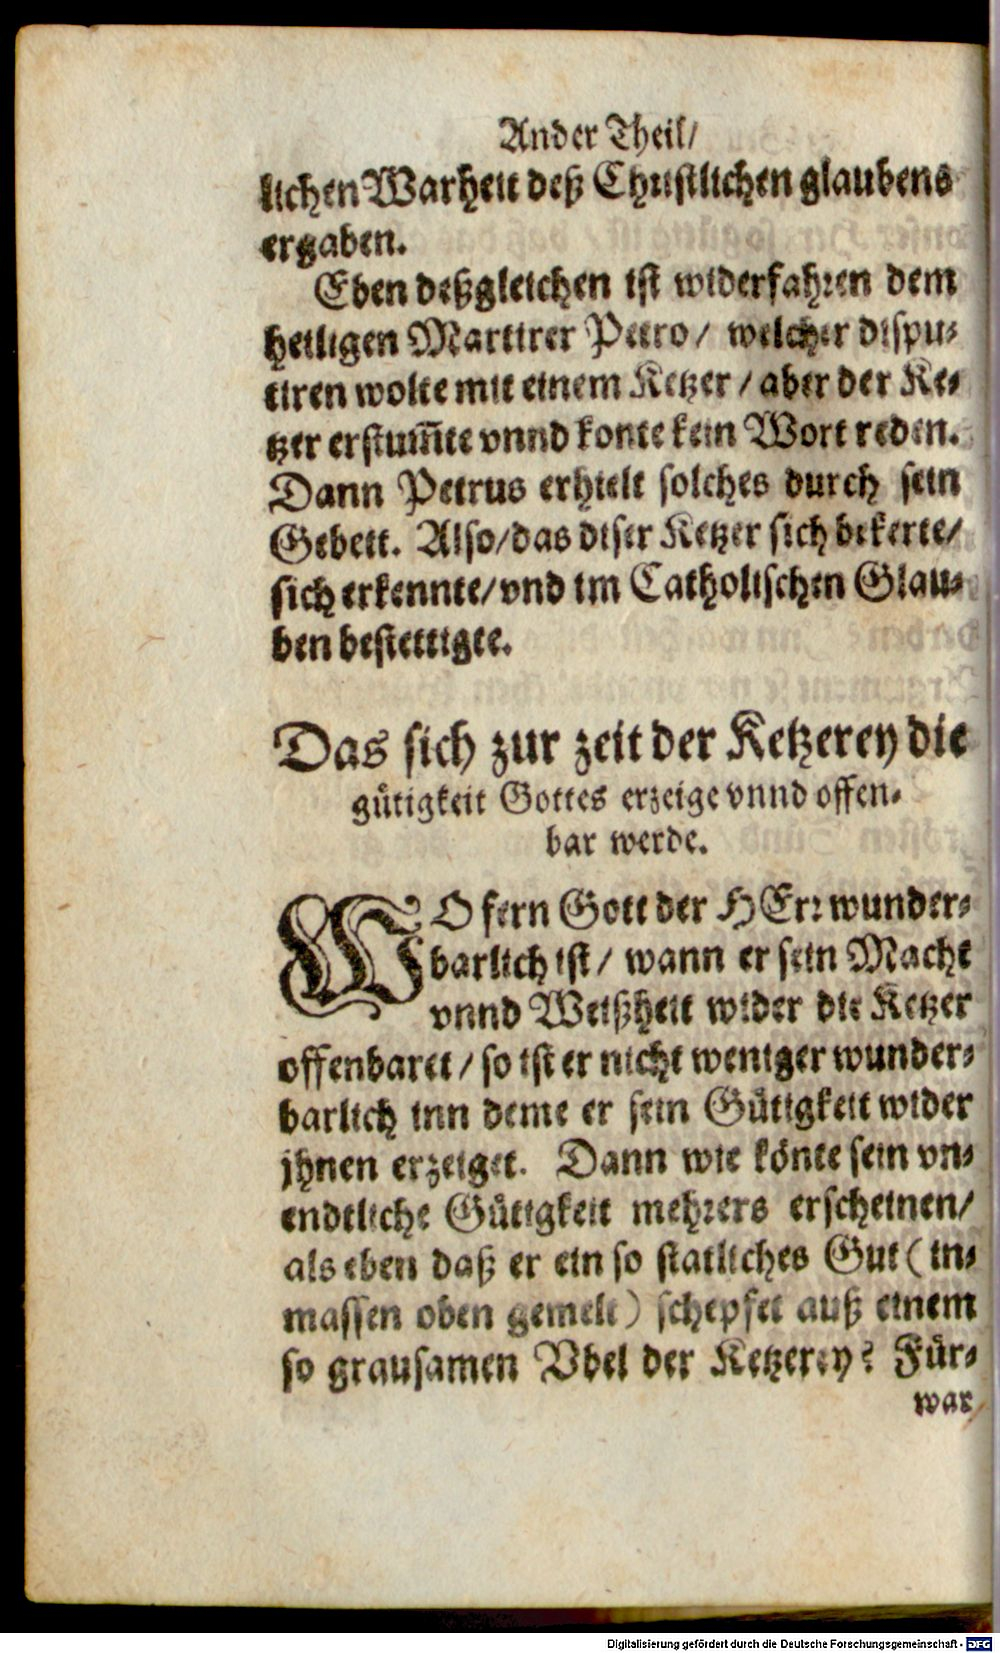 Ander Theil/
lichen Warheit deß Christlichen glaubens
ergaben.
Eben deßgleichen ist widerfahren dem
heiligen Martirer Petro/ welcher dispu-
tiren wolte mit einem Ketzer/ aber der Ke-
tzer erstum̃te vnnd konte kein Wort reden.
Dann Petrus erhielt solches durch sein
Gebett. Also/ das diser Ketzer sich bekerte/
sich erkennte/ vnd im Catholischen Glau-
ben bestettigte.
Das sich zur zeit der Ketzerey die
gütigkeit Gottes erzeige vnnd offen-
bar werde.
WO fern Gott der HErr wunder-
barlich ist/ wann er sein Macht
vnnd Weißheit wider die Ketzer
offenbaret/ so ist er nicht weniger wunder-
barlich inn deme er sein Gütigkeit wider
jhnen erzeiget. Dann wie könte sein vn-
endtliche Gütigkeit mehrers erscheinen/
als eben daß er ein so statliches Gut (in-
massen oben gemelt) schepfet auß einem
so grausamen Vbel der Ketzerey? Für-
war
Digitalisierung gefördert durch die Deutsche Forschungsgemeinschaft - DFG